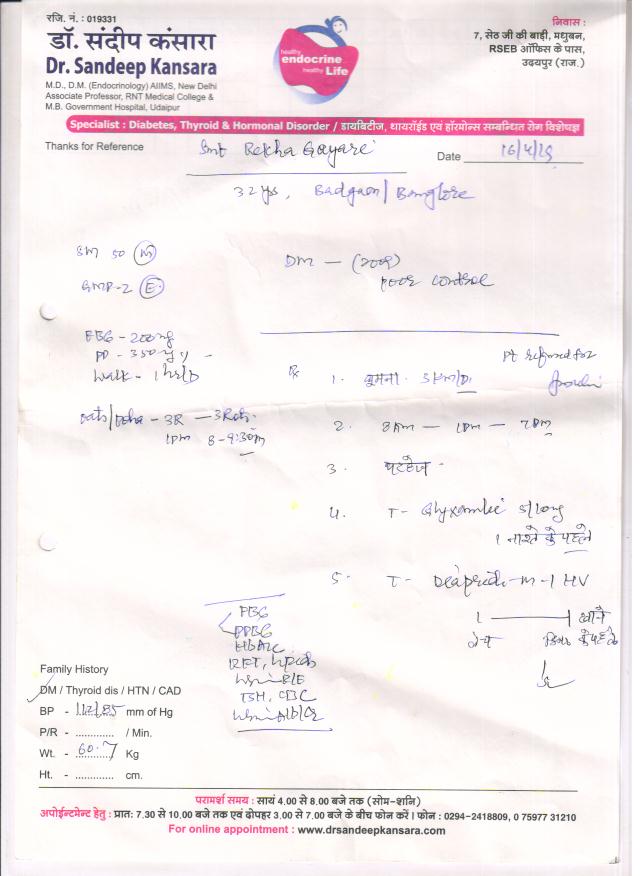 रजि. नं. : 019331
डॉ. संदीप कंसारा
Dr. Sandeep Kansara
M.D., D.M. (Endocrinology) AIIMS, New Delhi
Associate Professor, RNT Medical College &
M.B. Government Hospital, Udaipur
healthy
endocrine
healthy Life
निवास :
7, सेठ जी की बाड़ी, मधुबन,
RSEB ऑफिस के पास,
उदयपुर (राज.)
Specialist : Diabetes, Thyroid & Hormonal Disorder / डायबिटीज, थायरॉईड एवं हॉरमोन्स सम्बन्धित रोग विशेषज्ञ
Thanks for Reference
Smt Rekha Gayari
Date 16/4/25
32 ys, Badgaon/Banglore
GM 50 (M)
GMP-2 (E)
DM — (2009)
poor control
FBG - 200 mg
PP - 350 mg
Walk - 1 hr/D
3R
1pm 8-9:30m
Rx
Pt refused for
1. घूमना. 5 KM/D.
2. 8 AM — 1 PM — 7 PM
3. परहेज
4. T- Glyxambi 5/long
1 नाश्ते के पहले
5. T- Diapride-M-1 HV
1 — 1 खाने
के पहले
FBG
PPBG
HbA1c
RFT, Lipids
Urine R/E
TSH, CBC
Urine Alb/Cr
Family History
DM / Thyroid dis / HTN / CAD
BP - 112/85 mm of Hg
P/R - ............ / Min.
Wt. - 60.7 Kg
Ht. - ............ cm.
परामर्श समय : सायं 4.00 से 8.00 बजे तक (सोम-शनि)
अपोईन्टमेन्ट हेतु : प्रात: 7.30 से 10.00 बजे तक एवं दोपहर 3.00 से 7.00 बजे के बीच फोन करें। फोन : 0294-2418809, 0 75977 31210
For online appointment : www.drsandeepkansara.com